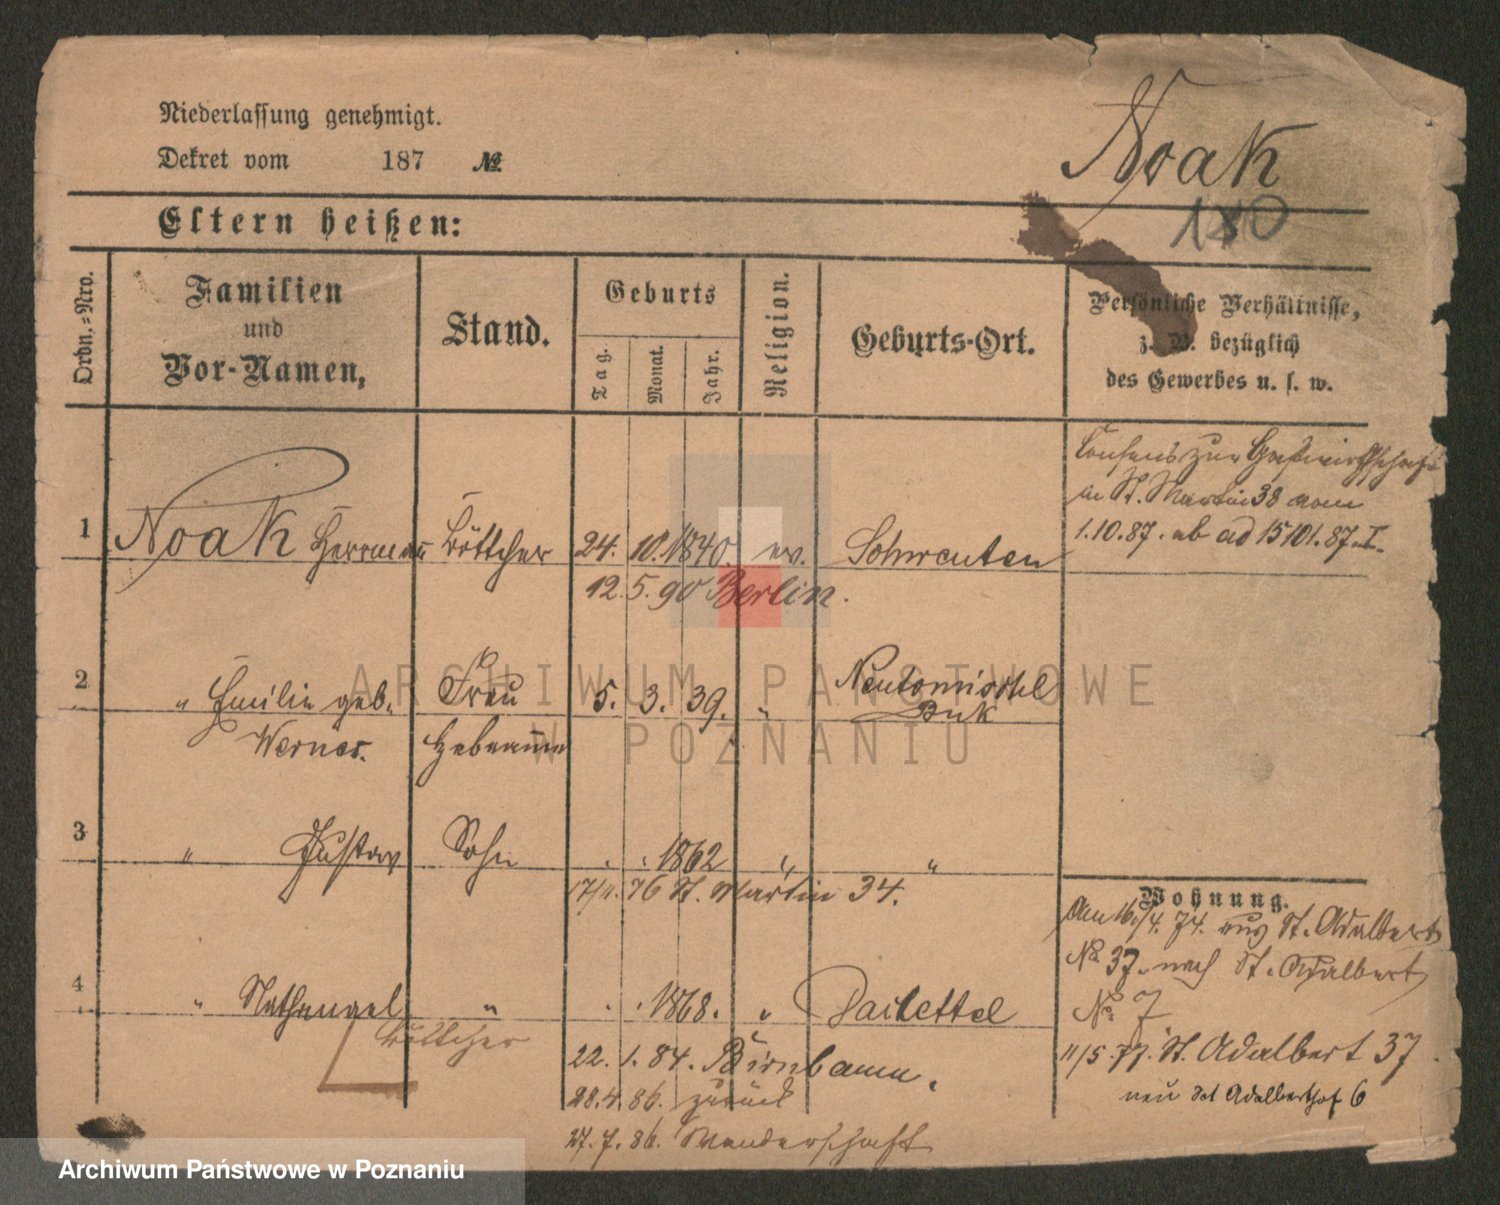 Niederlassung genehmigt.
Noak
Dekret vom 187 №
180
Eltern heißen:
Ordn.-Nro.
Familien
und
Vor-Namen,
Stand.
Geburts
Tag.
Monat.
Jahr.
Religion.
Geburts-Ort.
Persönliche Verhältnisse,
z. B. bezüglich
des Gewerbes u. s. w.
Consens zur Gastwirthschaft
in St. Martin 38 vom
1.10.87. ab ad 15101.87.I.
1 Noak Herrman Böttcher 24. 10. 1840. ev. Schwenten
12. 5. 90 Berlin.
2 " Emilie geb. Frau 5. 3. 39. " Neutomischel
Buk
Werner. Hebeamme
3 " Gustav Sohn . . 1862 " "
17/11. 76 St. Martin 34.
Wohnung.
Am 16/4. 74. aus St. Adalbert
No 37. nach St. Adalbert
No. 7
11/5. 77. St. Adalbert 37
neu St Adalberthof 6
4 " Nathanael " . . 1868. "
Böttcher
22. 1. 84. Birnbaum.
28. 4. 86. zurück
27. 7. 86. Wanderschaft
ARCHIWUM PAŃSTWOWE
W POZNANIU
Archiwum Państwowe w Poznaniu